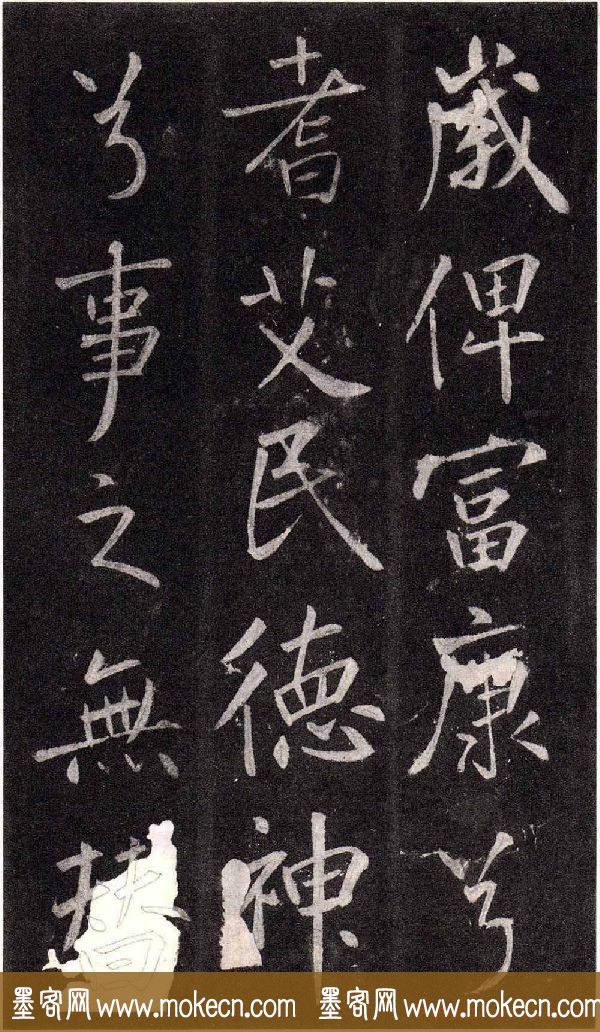 嵗俾富康兮
耆艾民德神
兮事之無替
墨客网 www.mokecn.com 墨客网 www.mokecn.com